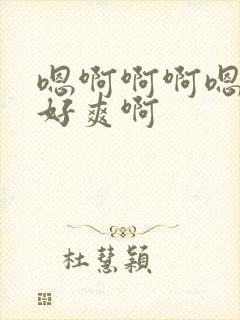 嗯啊啊啊嗯
好爽啊
杜慧穎